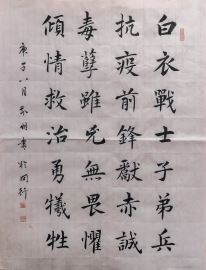 白衣戰士子弟兵
抗疫前鋒獻赤誠
毒孽雖兇無畏懼
傾情救治勇犧牲
庚子八月 書於閔行